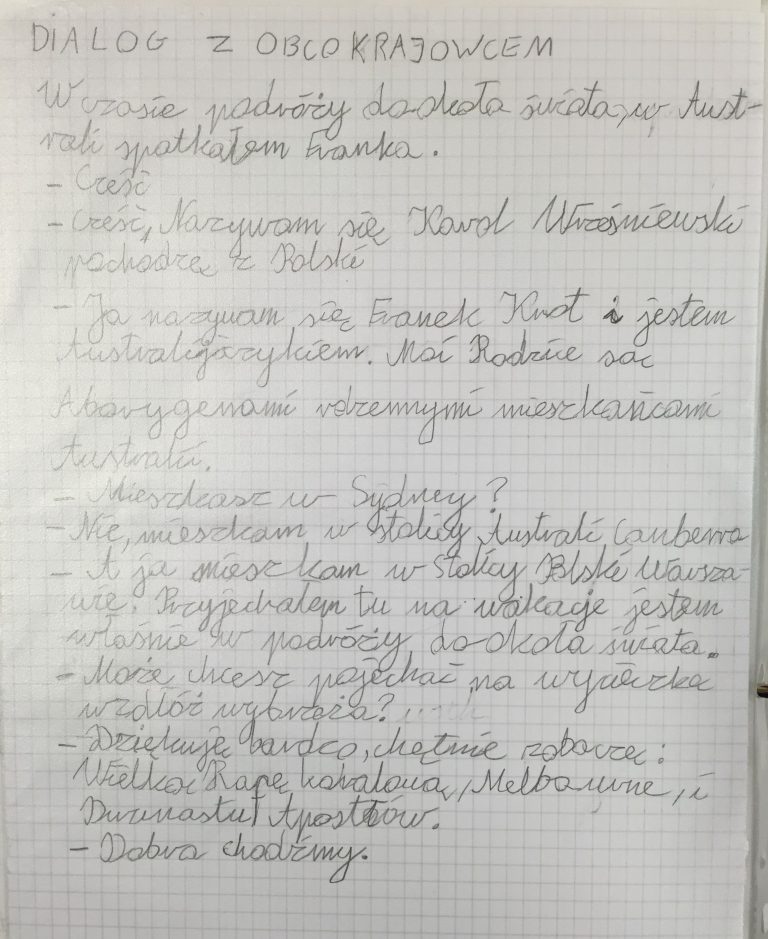 DIALOG Z OBCOKRAJOWCEM
W czasie podróży do-okoła świata, w Aust-
rali spotkałem Franka.
- Cześć
- Cześć, Nazywam się Karol Wrześniewski
pochodzę z Polski
- Ja nazywam się Franek Knot i jestem
Australijczykiem. Moi Rodzice sąc
Aborygenami rdzennymi mieszkańcami
Australii.
- Mieszkasz w Sydney?
- Nie, mieszkam w stolicy Australi Canberra
- A ja mieszkam w stolicy Polski Warsza-
wie. Przyjechałem tu na wakacje jestem
właśnie w podróży do-okoła świata.
- Może chcesz pojechać na wycieczka
wzdłóż wybrzeża?
- Dziękuję bardzo, chętnie zobaczę:
Wielką Rafę koralową, Melbourne, i
Dwunastu Apostołów.
- Dobra chodźmy.